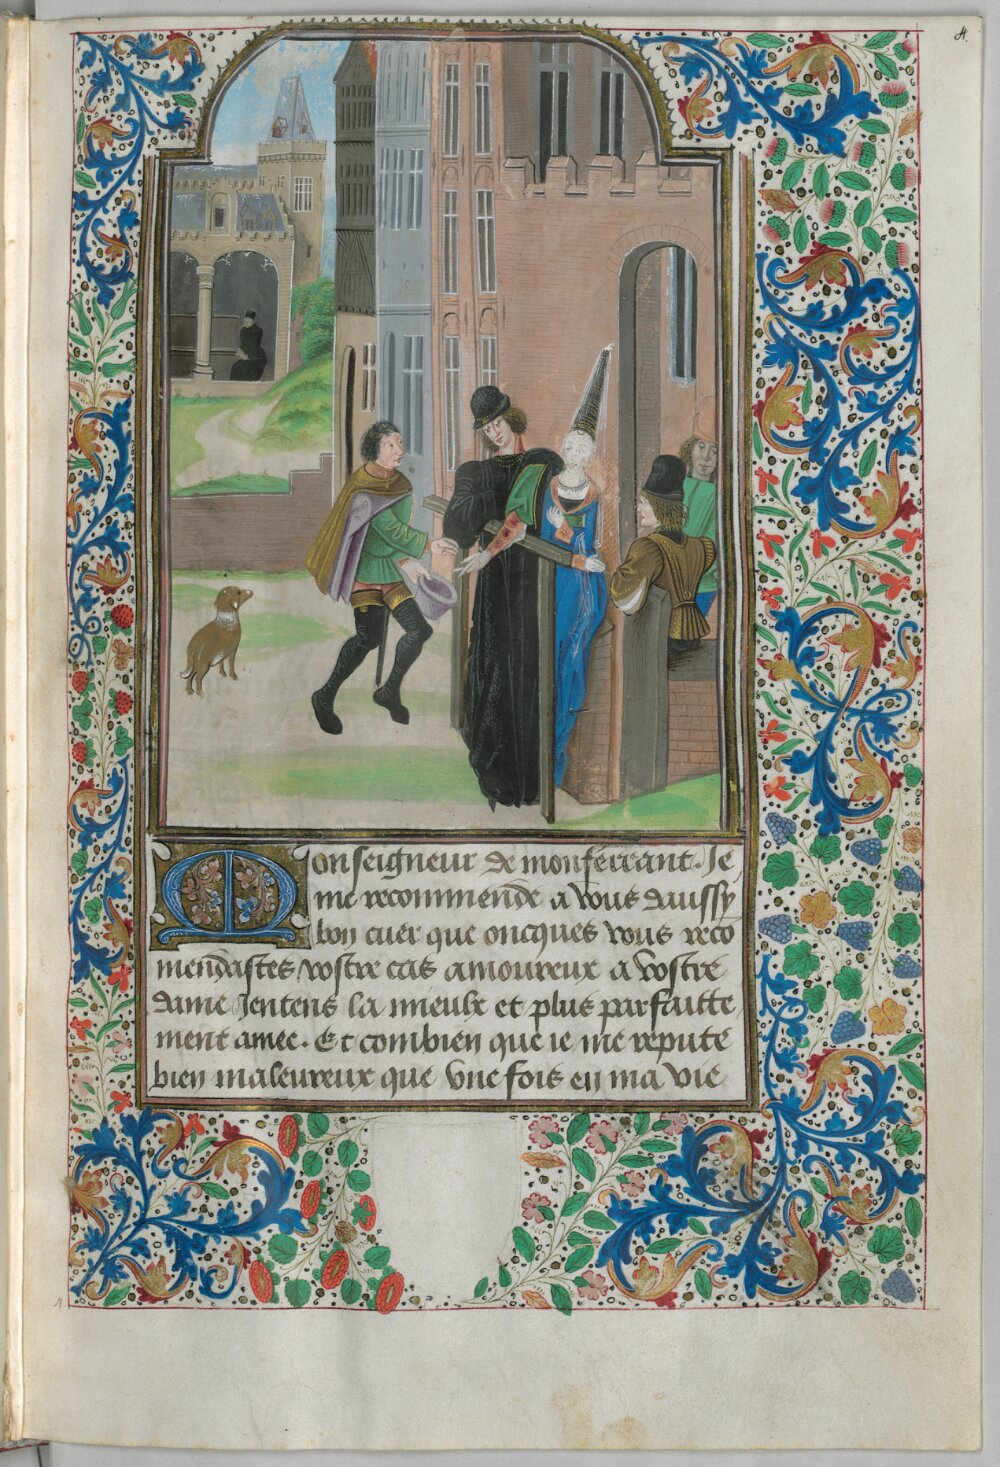 A.
Monseigneur de monferrant. Je
me recommende a vous daussy
bon cuer que oncques vous reco
mendastes vostre cas amoureux a vostre
dame Jentens la mieulx et plus parfaitte
ment amee. Et combien que ie me repute
bien maleureux que vne fois en ma vie